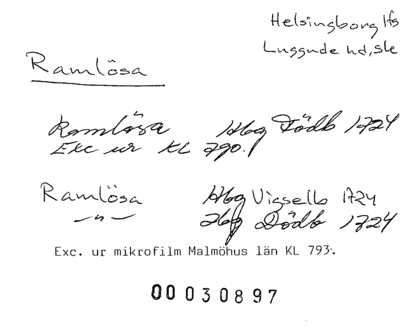 Helsingborg lfs
Luggude hd, sk
Ramlösa
Ramlösa Hbg Dödb 1724
Exc ur KL 790.
Ramlösa Hbg Vigselb 1724
—"— Hbg Dödb 1724
Exc. ur mikrofilm Malmöhus län KL 793.
00 030897